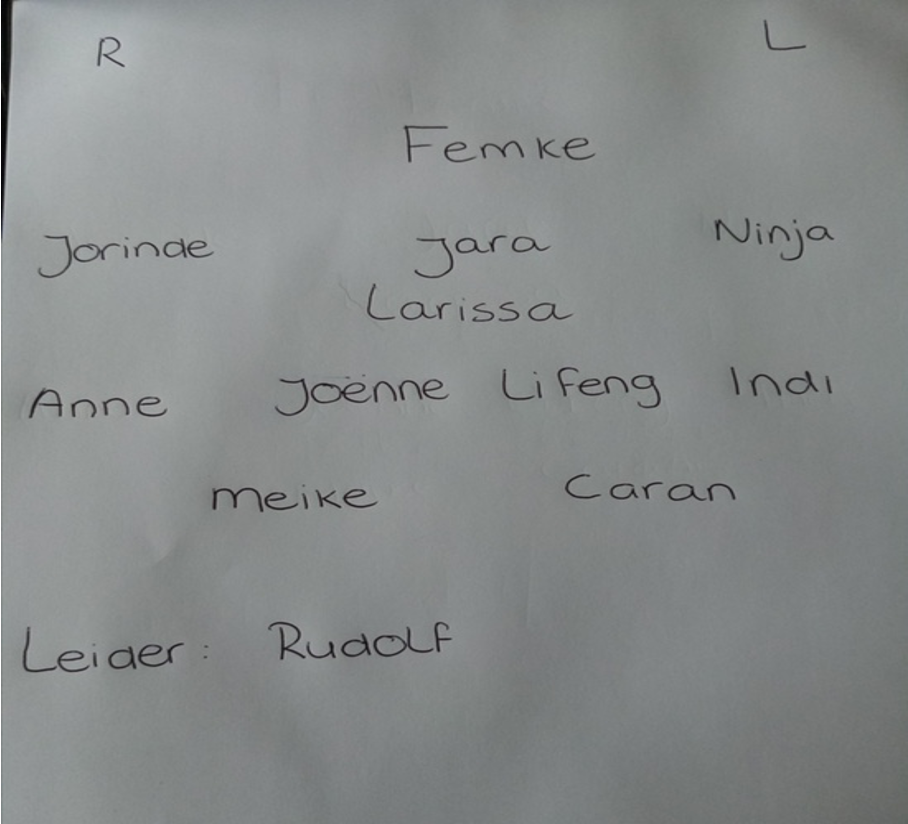 R L
Femke
Jorinde Jara Ninja
Larissa
Anne Joënne Lifeng Indi
Meike Caran
Leider: Rudolf